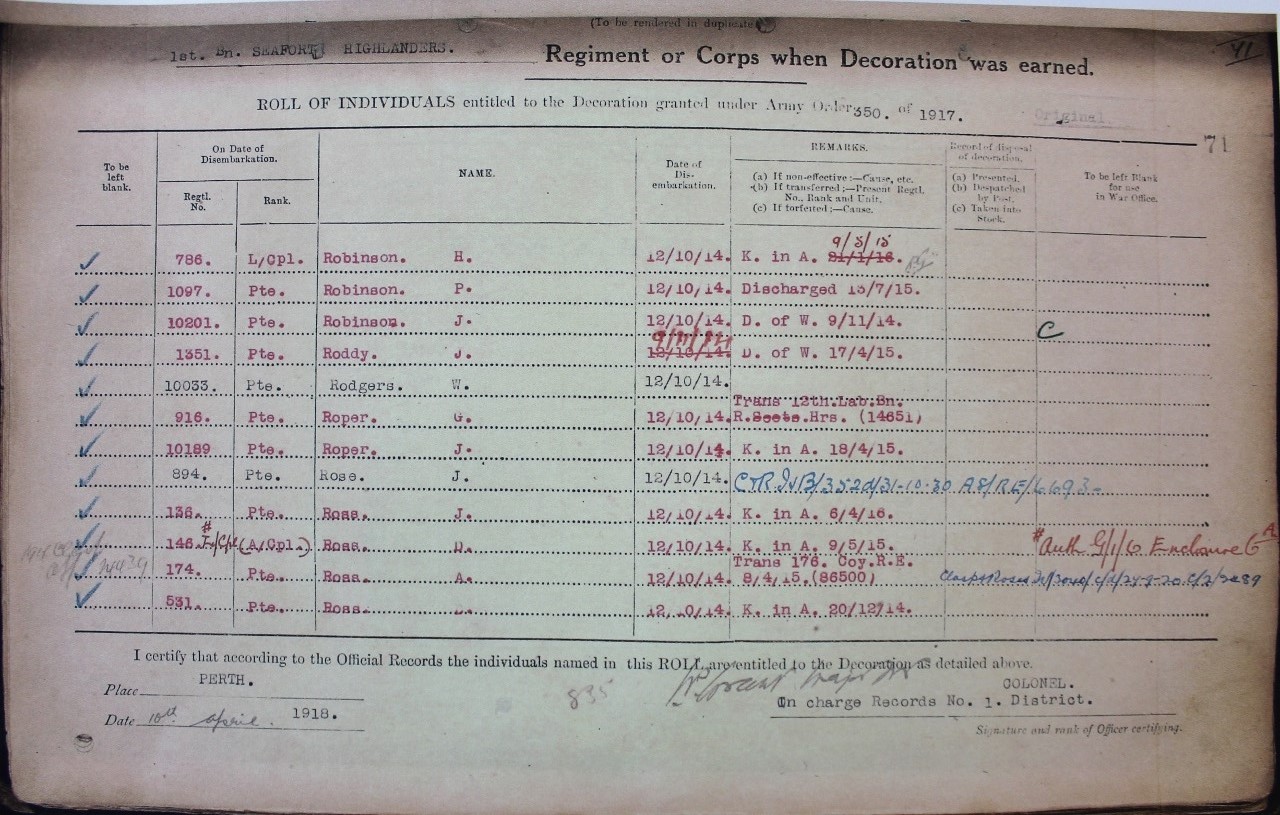 (To be rendered in duplicate
41
1st. Bn. SEAFORTH HIGHLANDERS. Regiment or Corps when Decoration was earned.
ROLL OF INDIVIDUALS entitled to the Decoration granted under Army Order 350. of 1917. Original.
71
To be left blank. On Date of Disembarkation. Regtl. No. Rank. NAME. Date of Dis-embarkation. REMARKS. (a) If non-effective:—Cause, etc. (b) If transferred;—Present Regtl. No., Rank and Unit. (c) If forfeited;—Cause. Record of disposal of decoration. (a) Presented. (b) Despatched by Post. (c) Taken into Stock. To be left Blank for use in War Office.
9/5/15
786. L/Cpl. Robinson. H. 12/10/14. K. in A. 31/1/16.
1097. Pte. Robinson. P. 12/10/14. Discharged 15/7/15.
10201. Pte. Robinson. J. 12/10/14. D. of W. 9/11/14. C
9/11/14
1351. Pte. Roddy. J. 12/10/14. D. of W. 17/4/15.
10033. Pte. Rodgers. W. 12/10/14.
Trans 12th.Lab.Bn.
916. Pte. Roper. G. 12/10/14. R.Scots.Hrs. (14651)
10189 Pte. Roper. J. 12/10/14. K. in A. 18/4/15.
894. Pte. Rose. J. 12/10/14. 31-10-20 AS/RE/6693-
136. Pte. Ross. J. 12/10/14. K. in A. 6/4/16.
146. # L/Cpl (A/Cpl.) Ross. D. 12/10/14. K. in A. 9/5/15. # Auth 9/1/6 Enclosure 6A
Trans 176. Coy.R.E.
174. Pte. Ross. A. 12/10/14. 8/4/15.(86500)
531. Pte. Ross. 12/10/14. K. in A. 20/12/14.
I certify that according to the Official Records the individuals named in this ROLL are entitled to the Decoration as detailed above.
Place PERTH. COLONEL.
835
Date 10th April. 1918. In charge Records No. 1. District.
Signature and rank of Officer certifying.